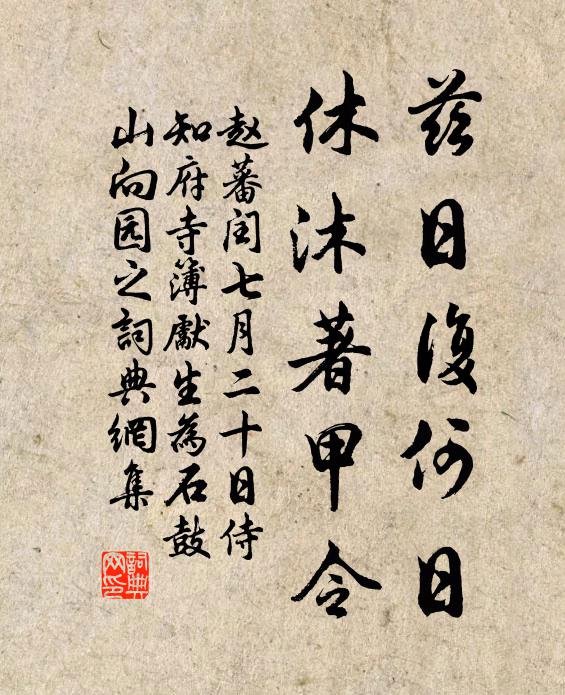 茲日復何日
休沐著甲令
赵蕃闰七月二十日侍
知府寺簿獻生為石鼓
山向园之詞典網集
詞典网印